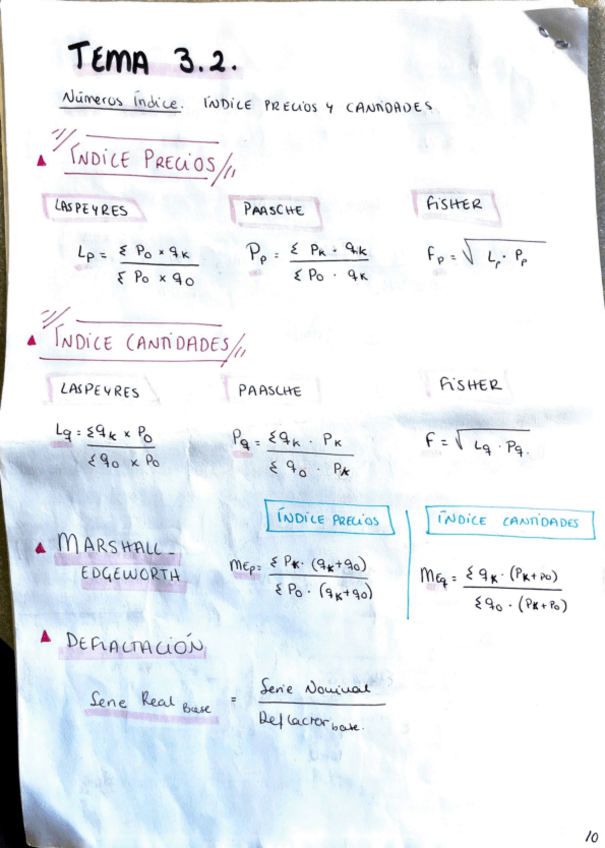 TEMA 3.2.
Números Índice. ÍNDICE PRECIOS Y CANTIDADES.
ÍNDICE PRECIOS
LASPEYRES PAASCHE FISHER
Lp = Σ P0 × qk / Σ P0 × q0 Pp = Σ Pk · qk / Σ P0 · qk Fp = √ Lp · Pp
ÍNDICE CANTIDADES
LASPEYRES PAASCHE FISHER
Lq = Σqk × P0 / Σq0 × P0 Pq = Σqk · Pk / Σ q0 · Pk F = √ Lq · Pq.
ÍNDICE PRECIOS ÍNDICE CANTIDADES
MARSHALL-
EDGEWORTH
MEp = Σ Pk · (qk+q0) / Σ P0 · (qk+q0) MEq = Σ qk · (Pk+P0) / Σq0 · (Pk+P0)
DEFLACTACIÓN
Serie Real Base = Serie Nominal / Deflactor base.
10